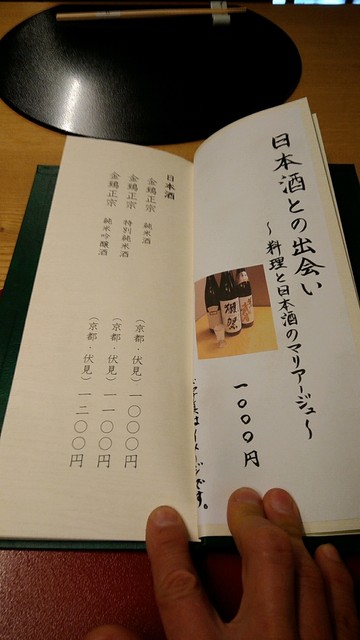 日本酒との出会い
～料理と日本酒のマリアージュ～
獺祭
一〇〇〇円
写真はイメージです。
日本酒
金鵄正宗 純米酒 （京都・伏見）一〇〇〇円
金鵄正宗 特別純米酒 （京都・伏見）一一〇〇円
金鵄正宗 純米吟醸酒 （京都・伏見）一二〇〇円